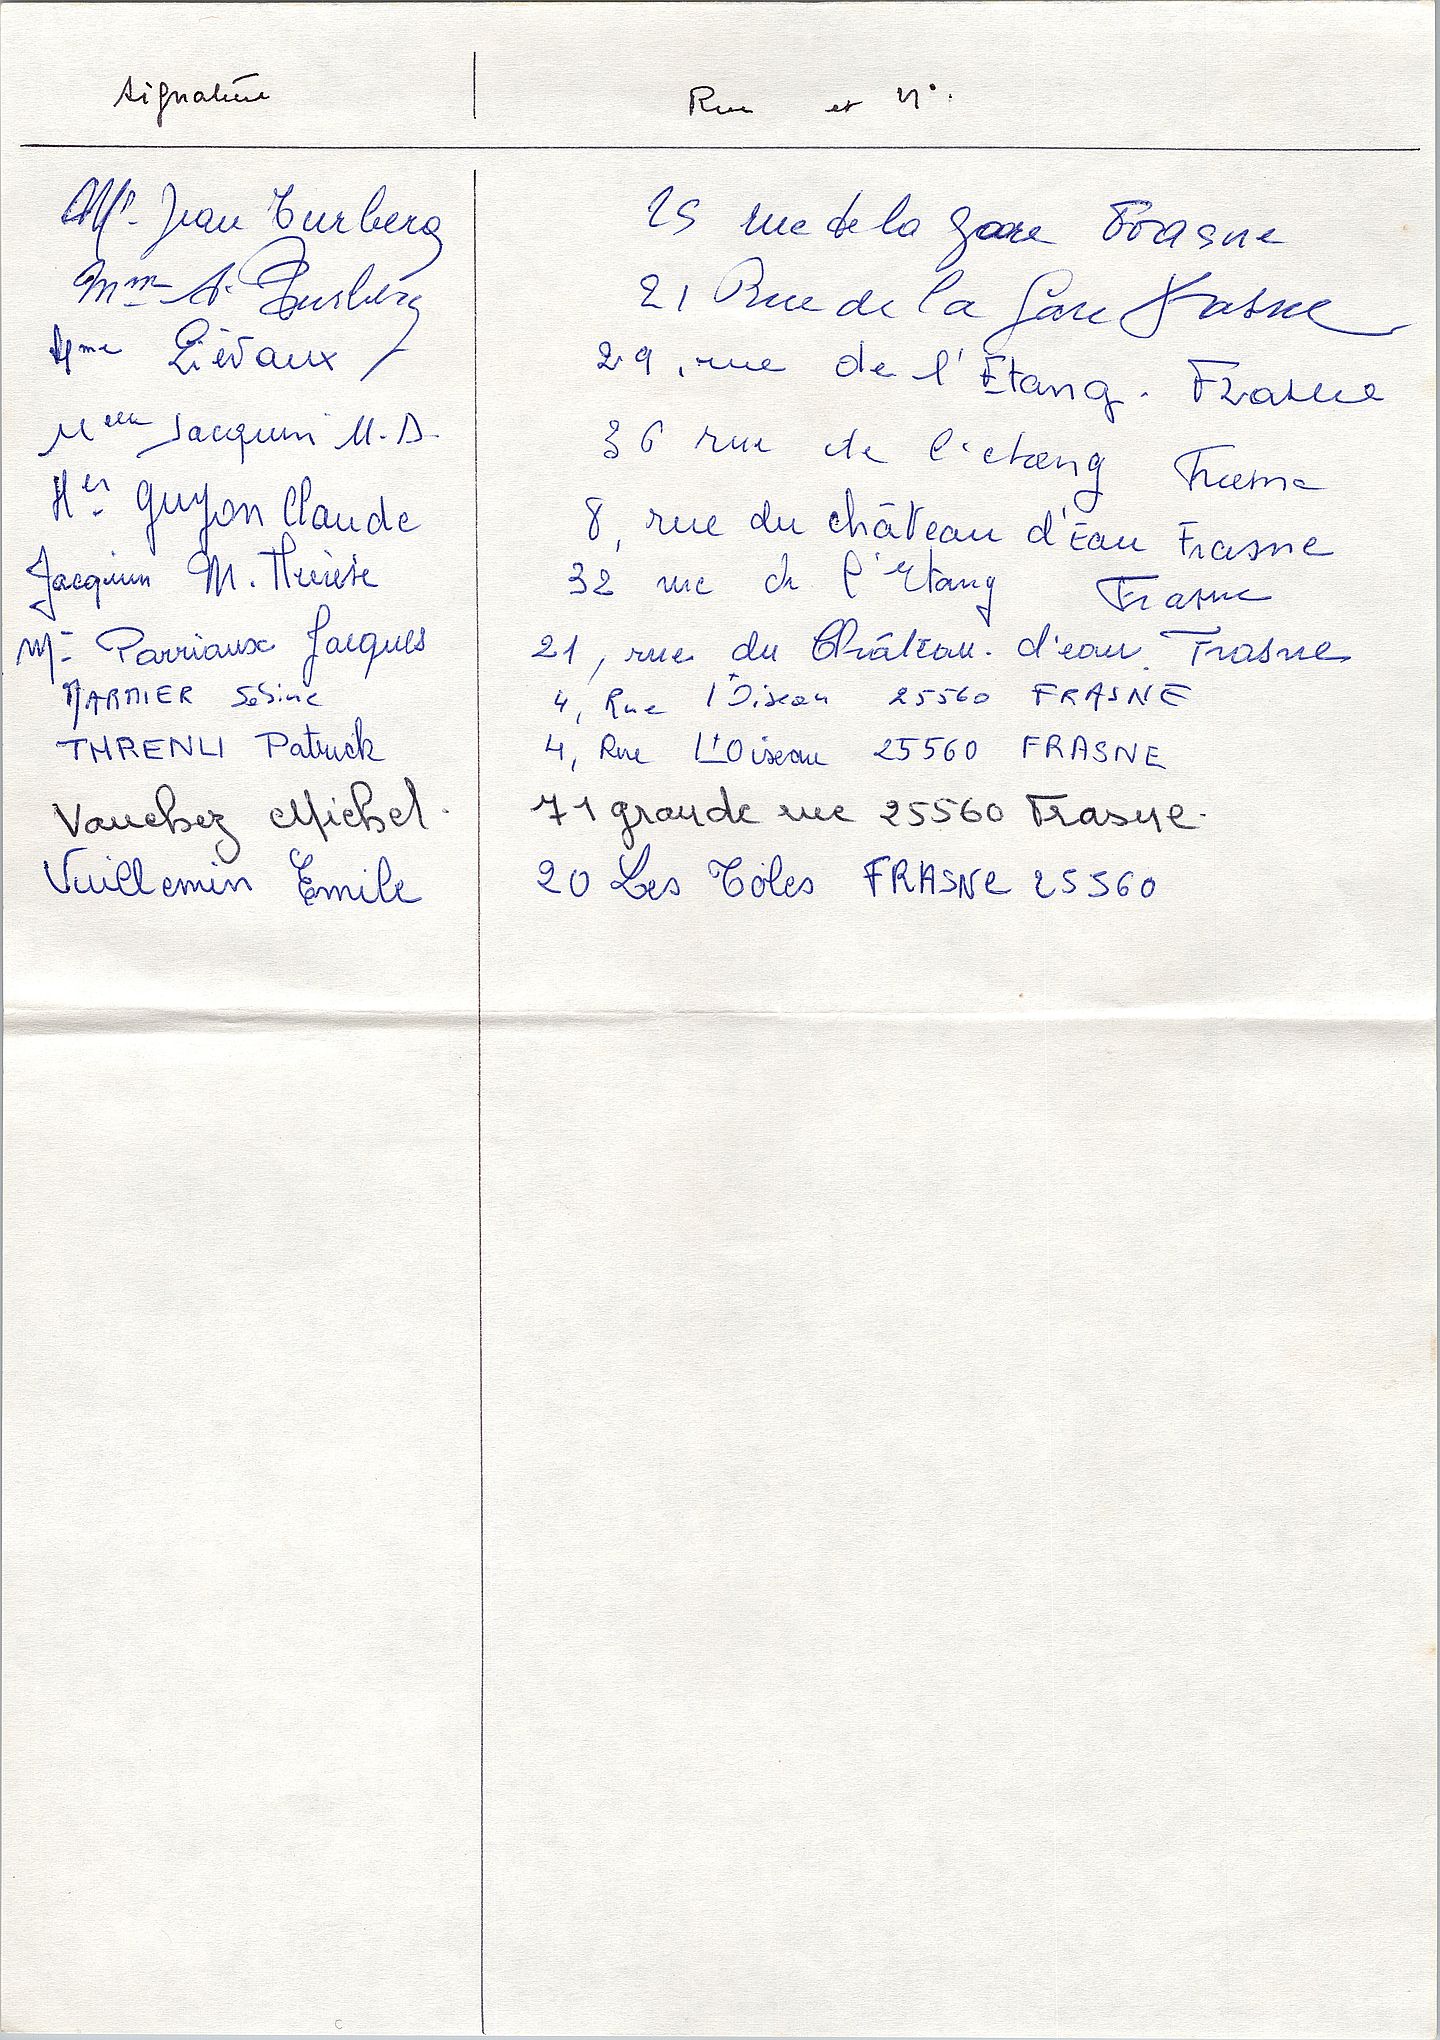 Signature Rue et N°.
Mr. Jean Turberg 25 rue de la gare Frasne
Mme A. Turberg 21 Rue de la Gare Frasne
Mme Liévaux 29, rue de l'Etang. Frasne
Melle Jacquin M.D. 36 rue de l'etang Frasne
Mer Guyon Claude 8, rue du château d'Eau Frasne
Jacquin M. Thérèse 32 rue de l'Etang Frasne
Mr Parriaux Jacques 21, rue du Château. d'eau. Frasne
MARMIER Sabine 4, Rue l'Oiseau 25560 FRASNE
THRENLI Patrick 4, Rue L'Oiseau 25560 FRASNE
Vauchez Michel. 71 grande rue 25560 Frasne.
Vuillemin Emile 20 Les Tôles FRASNE 25560